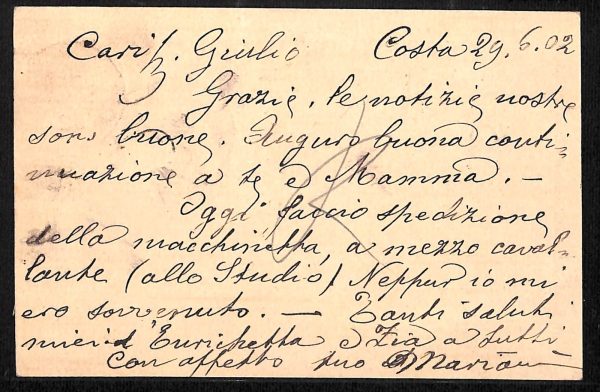 Cariss. Giulio Costa 29.6.02
Grazie. Le notizie nostre
sono buone. Auguro buona conti-
nuazione a te e Mamma. —
Oggi faccio spedizione
della macchinetta, a mezzo caval-
lante (allo Studio) Neppur io mi
ero sovvenuto. — Tanti saluti
miei d'Enrichetta e Zia a tutti
Con affetto tuo